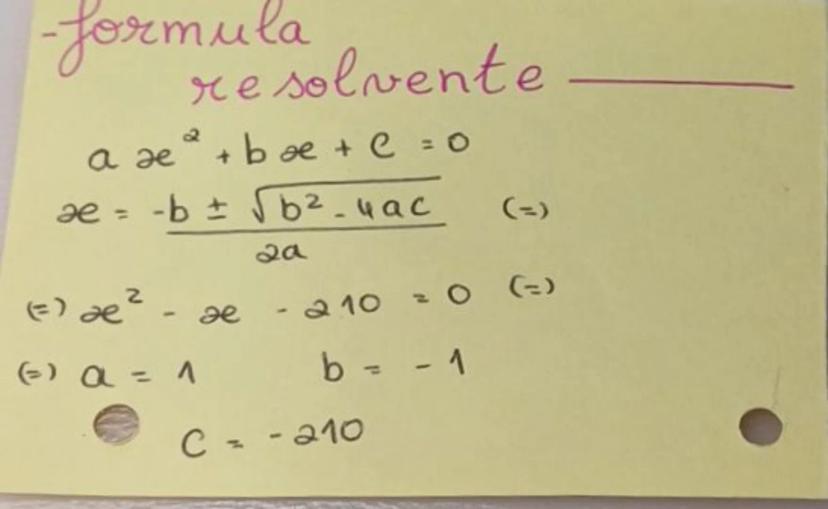 -formula
resolvente
a x² + b x + c = 0
x = -b ± √b² - 4ac (=)
2a
(=) x² - x - 210 = 0 (=)
(=) a = 1 b = - 1
c = -210